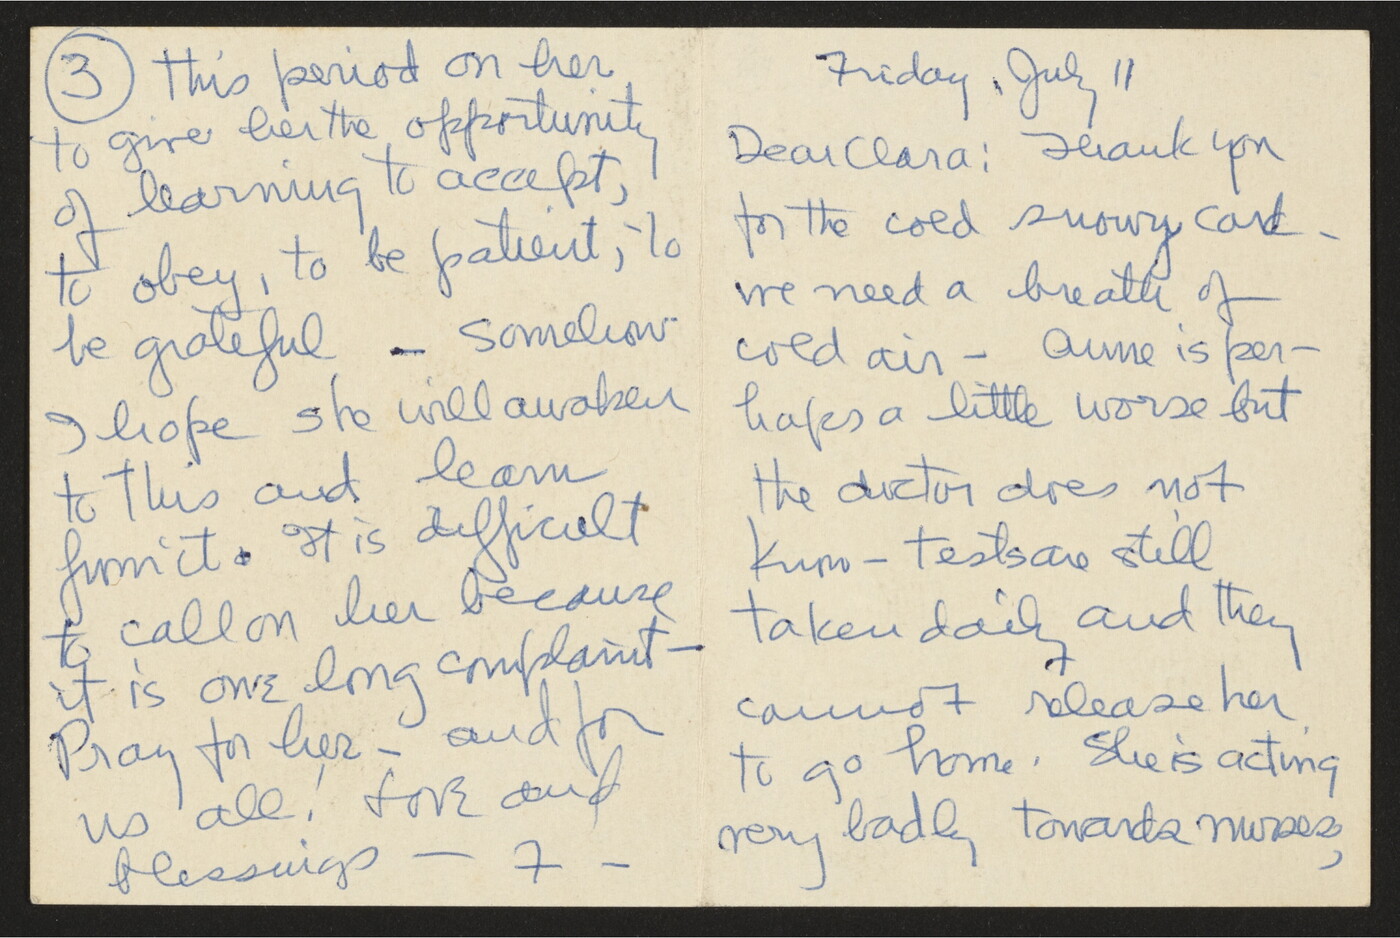 Friday, July 11
Dear Clara: Thank you
for the cold snowy card -
we need a breath of
cold air - Anne is per-
haps a little worse but
the doctor does not
know - tests are still
taken daily and they
cannot release her
to go home. She is acting
very badly towards nurses,
3 this period on her
to give her the opportunity
of learning to accept,
to obey, to be patient, to
be grateful - somehow
I hope she will awaken
to this and learn
from it. It is difficult
to call on her because
it is one long complaint -
Pray for her - and for
us all! Love and
blessings - 7 -